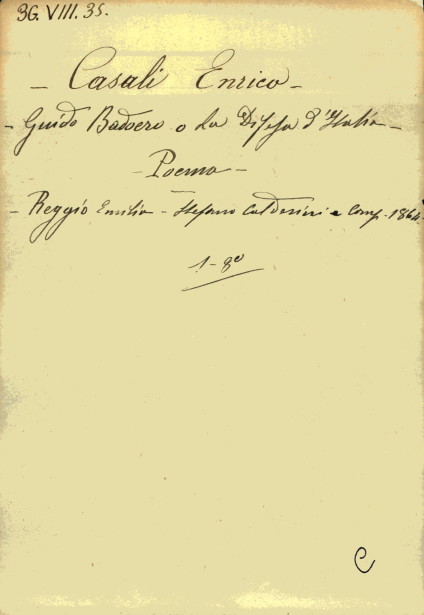 3G. VIII. 35.
- Casali Enrico -
- Guido Badoero o La Difesa d'Italia -
- Poema -
- Reggio Emilia - Stefano Calderini e Comp. 1864.
1 - 8°
C